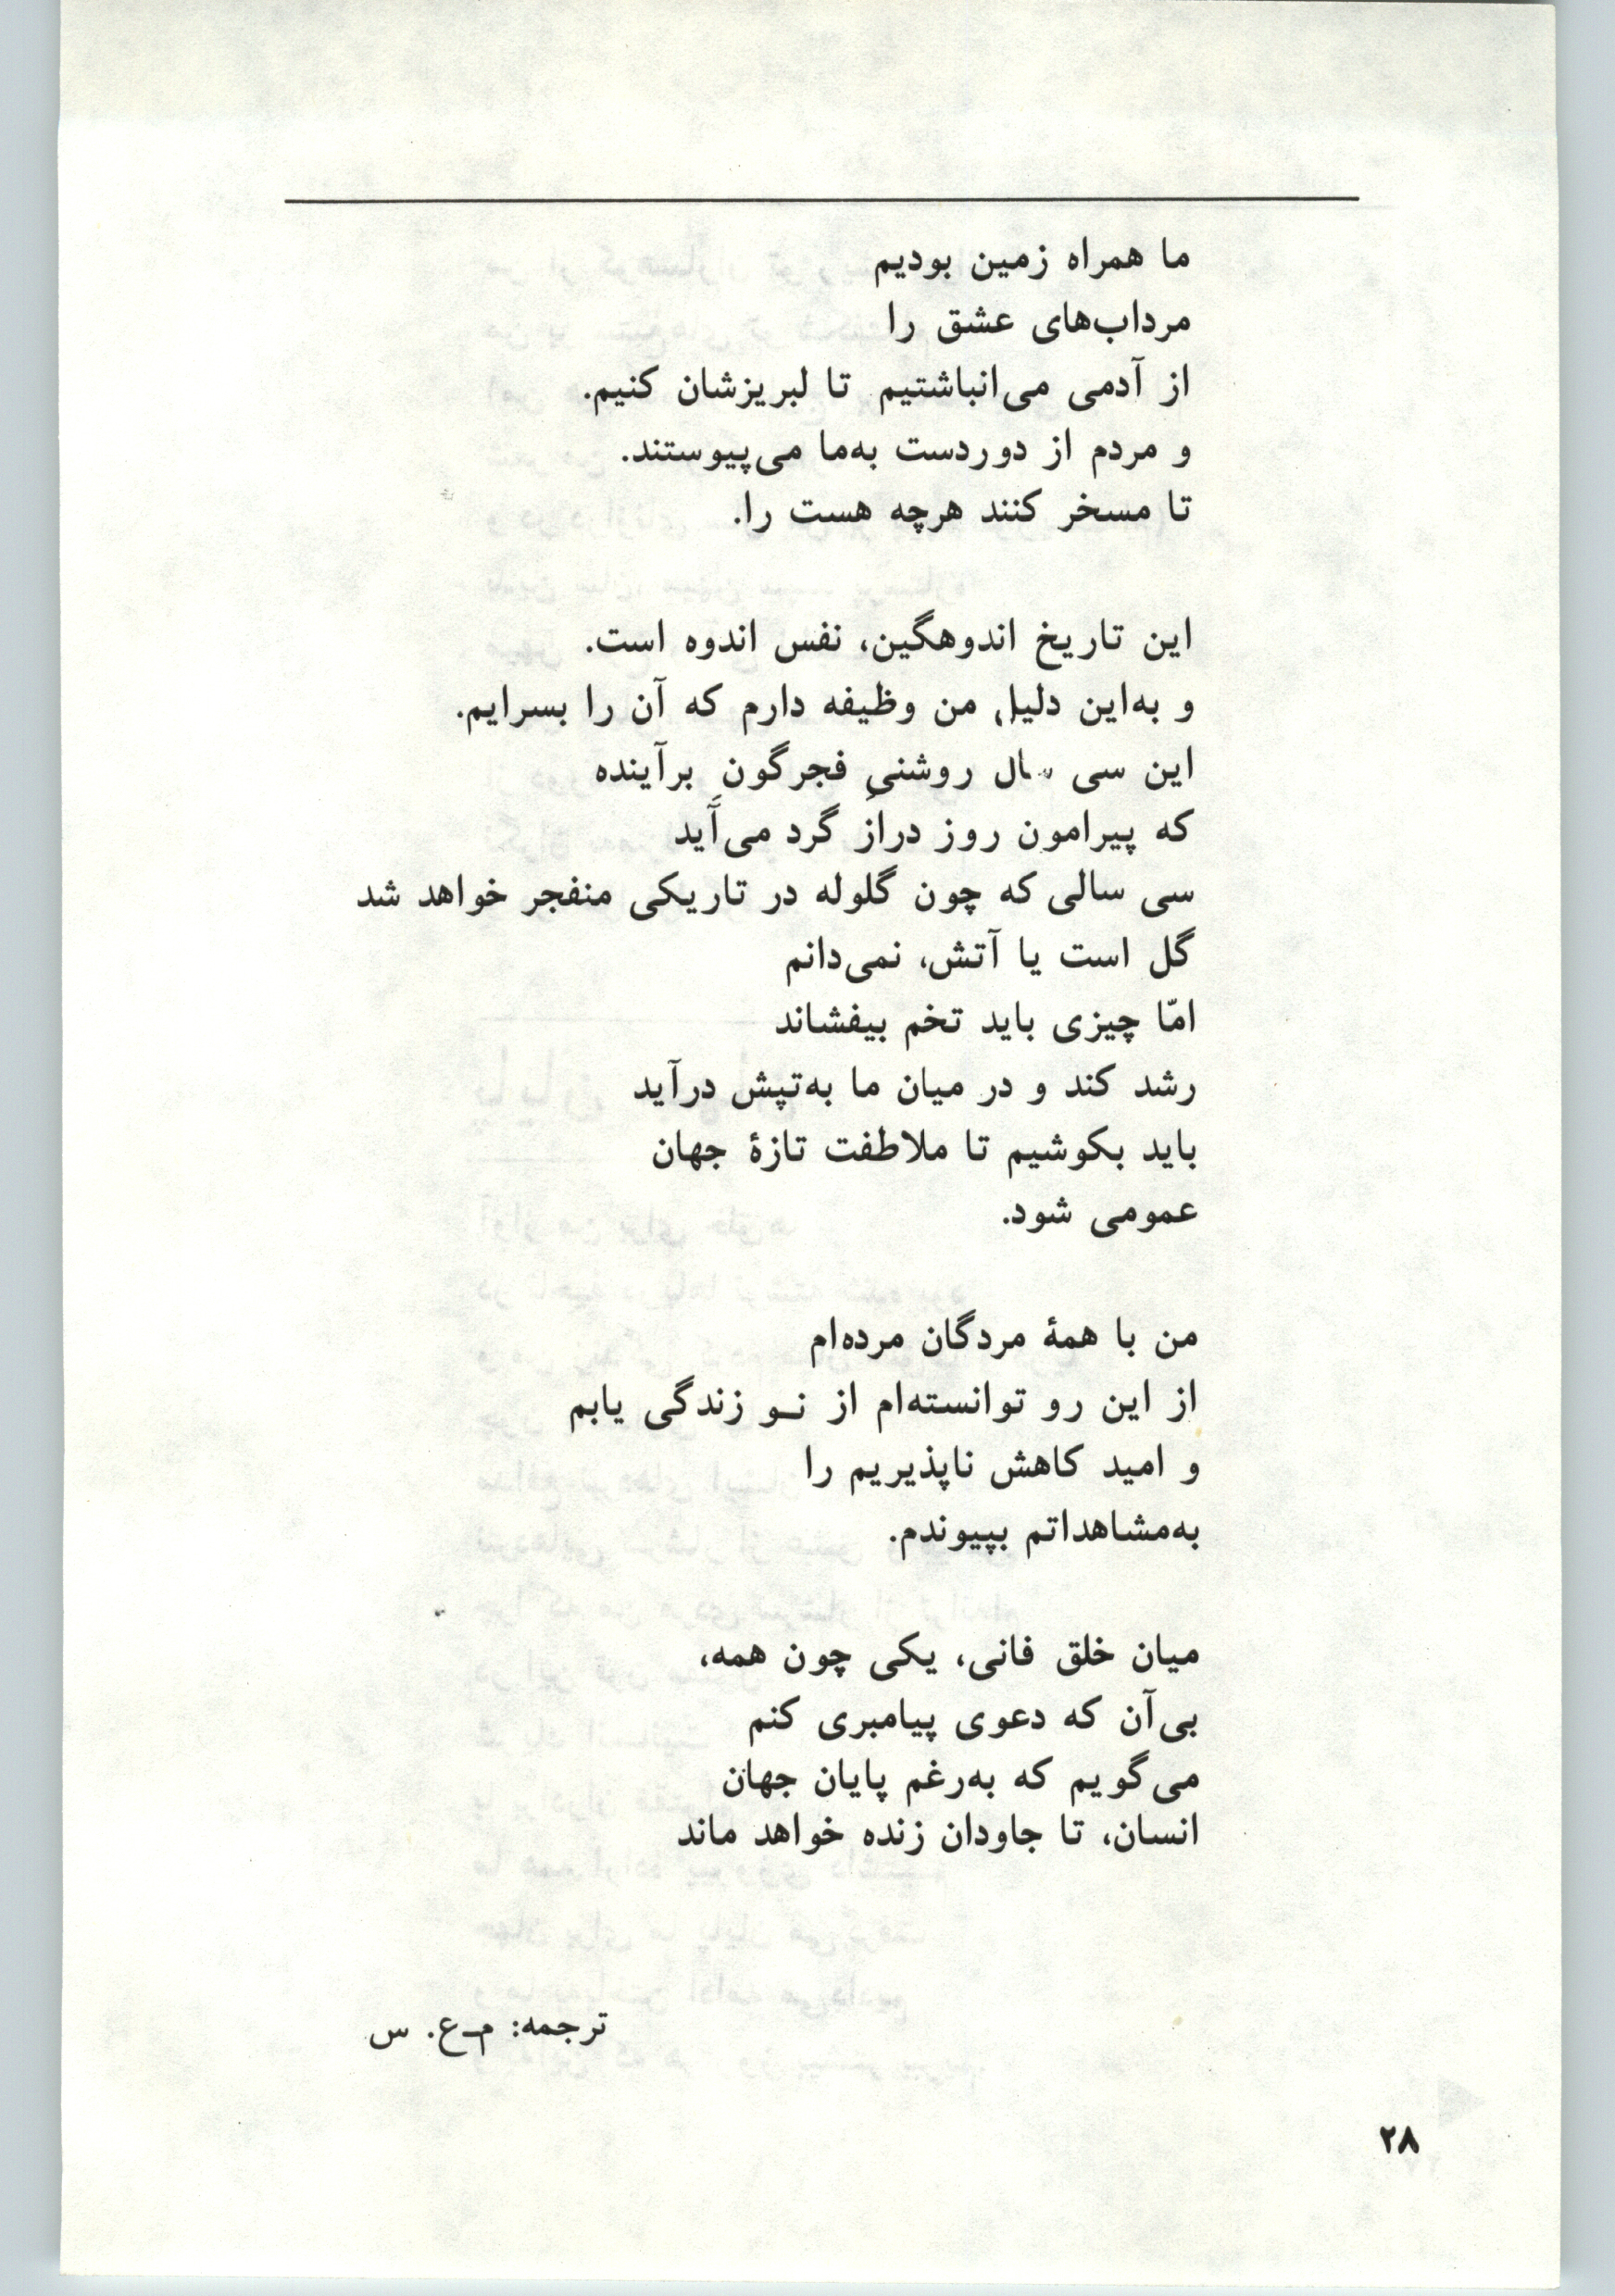 ما همراه زمین بودیم
مرداب‌های عشق را
از آدمی می‌انباشتیم تا لبریزشان کنیم.
و مردم از دوردست به‌ما می‌پیوستند.
تا مسخر کنند هرچه هست را.
این تاریخ اندوهگین، نفس اندوه است.
و به‌این دلیل من وظیفه دارم که آن را بسرایم.
این سی سال روشنیِ فجرگونِ برآینده
که پیرامون روز دراز گرد می‌آید
سی سالی که چون گلوله در تاریکی منفجر خواهد شد
گل است یا آتش، نمی‌دانم
امّا چیزی باید تخم بیفشاند
رشد کند و در میان ما به‌تپش درآید
باید بکوشیم تا ملاطفت تازهٔ جهان
عمومی شود.
من با همهٔ مردگان مرده‌ام
از این رو توانسته‌ام از نـو زندگی یابم
و امید کاهش ناپذیریم را
به‌مشاهداتم بپیوندم.
میان خلق فانی، یکی چون همه،
بی‌آن که دعوی پیامبری کنم
می‌گویم که به‌رغم پایان جهان
انسان، تا جاودان زنده خواهد ماند
ترجمه: م-ع. س
۲۸